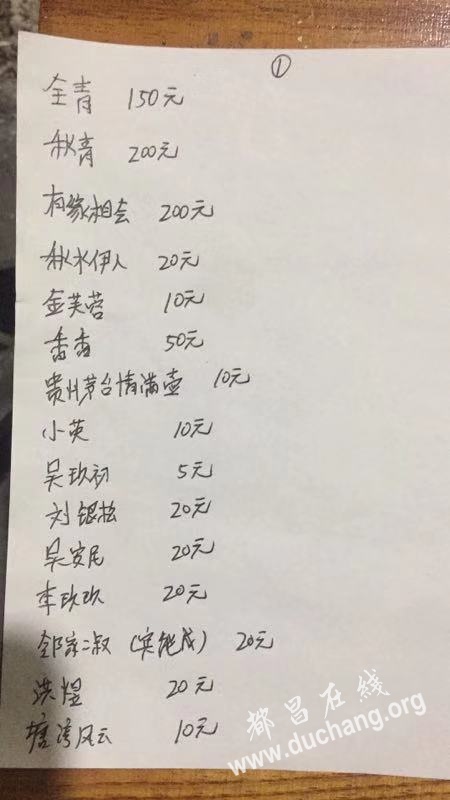 ①
全青 150元
秋青 200元
有缘相会 200元
秋水伊人 20元
金芙蓉 10元
香香 50元
贵州茅台情满壶 10元
小英 10元
吴玖初 5元
刘银松 20元
吴安民 20元
李玖玖 20元
邻家二叔 20元
洪煜 20元
塘湾风云 10元
都昌在线
www.duchang.org